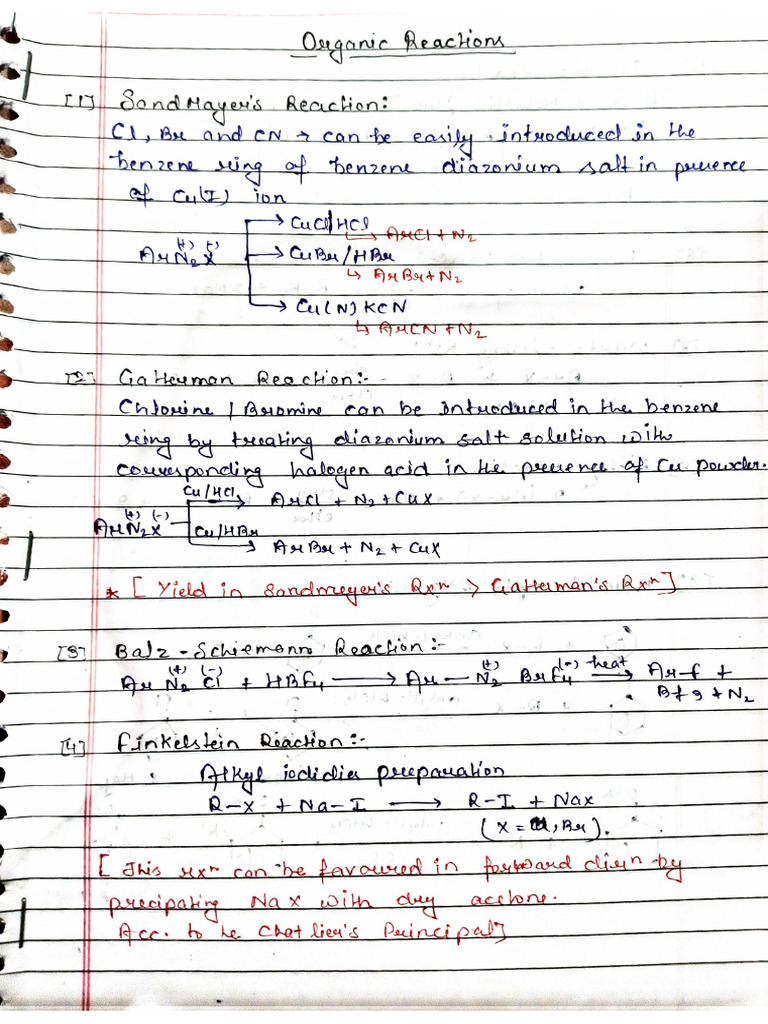 Organic Reactions
[1] SandMayer's Reaction:
Cl, Br and CN → can be easily introduced in the
benzene ring of benzene diazonium salt in presence
of Cu(I) ion
→ CuCl/HCl
↳ ArCl + N2
ArN2X (+) (-) → CuBr/HBr
↳ ArBr + N2
→ Cu(N)KCN
↳ ArCN + N2
[2] Gatterman Reaction:-
Chlorine / Bromine can be introduced in the benzene
ring by treating diazonium salt solution with
corresponding halogen acid in the presence of Cu powder.
Cu/HCl → ArCl + N2 + CuX
ArN2X (+) (-)
Cu/HBr → ArBr + N2 + CuX
* [ Yield in Sandmeyer's Rxn > Gatterman's Rxn ]
[3] Balz - Schiemann Reaction:-
Ar N2 (+) Cl (-) + HBF4 → Ar — N2 (+) BrF4 (-) heat → Ar-f +
Bf3 + N2
[4] Finkelstein Reaction:-
Alkyl iodidies preparation
R-X + Na-I → R-I + Nax
(X = Cl, Br).
[ This rxn can be favoured in forward dirn by
precipating NaX with dry acetone.
Acc. to le Chat lier's Principal]